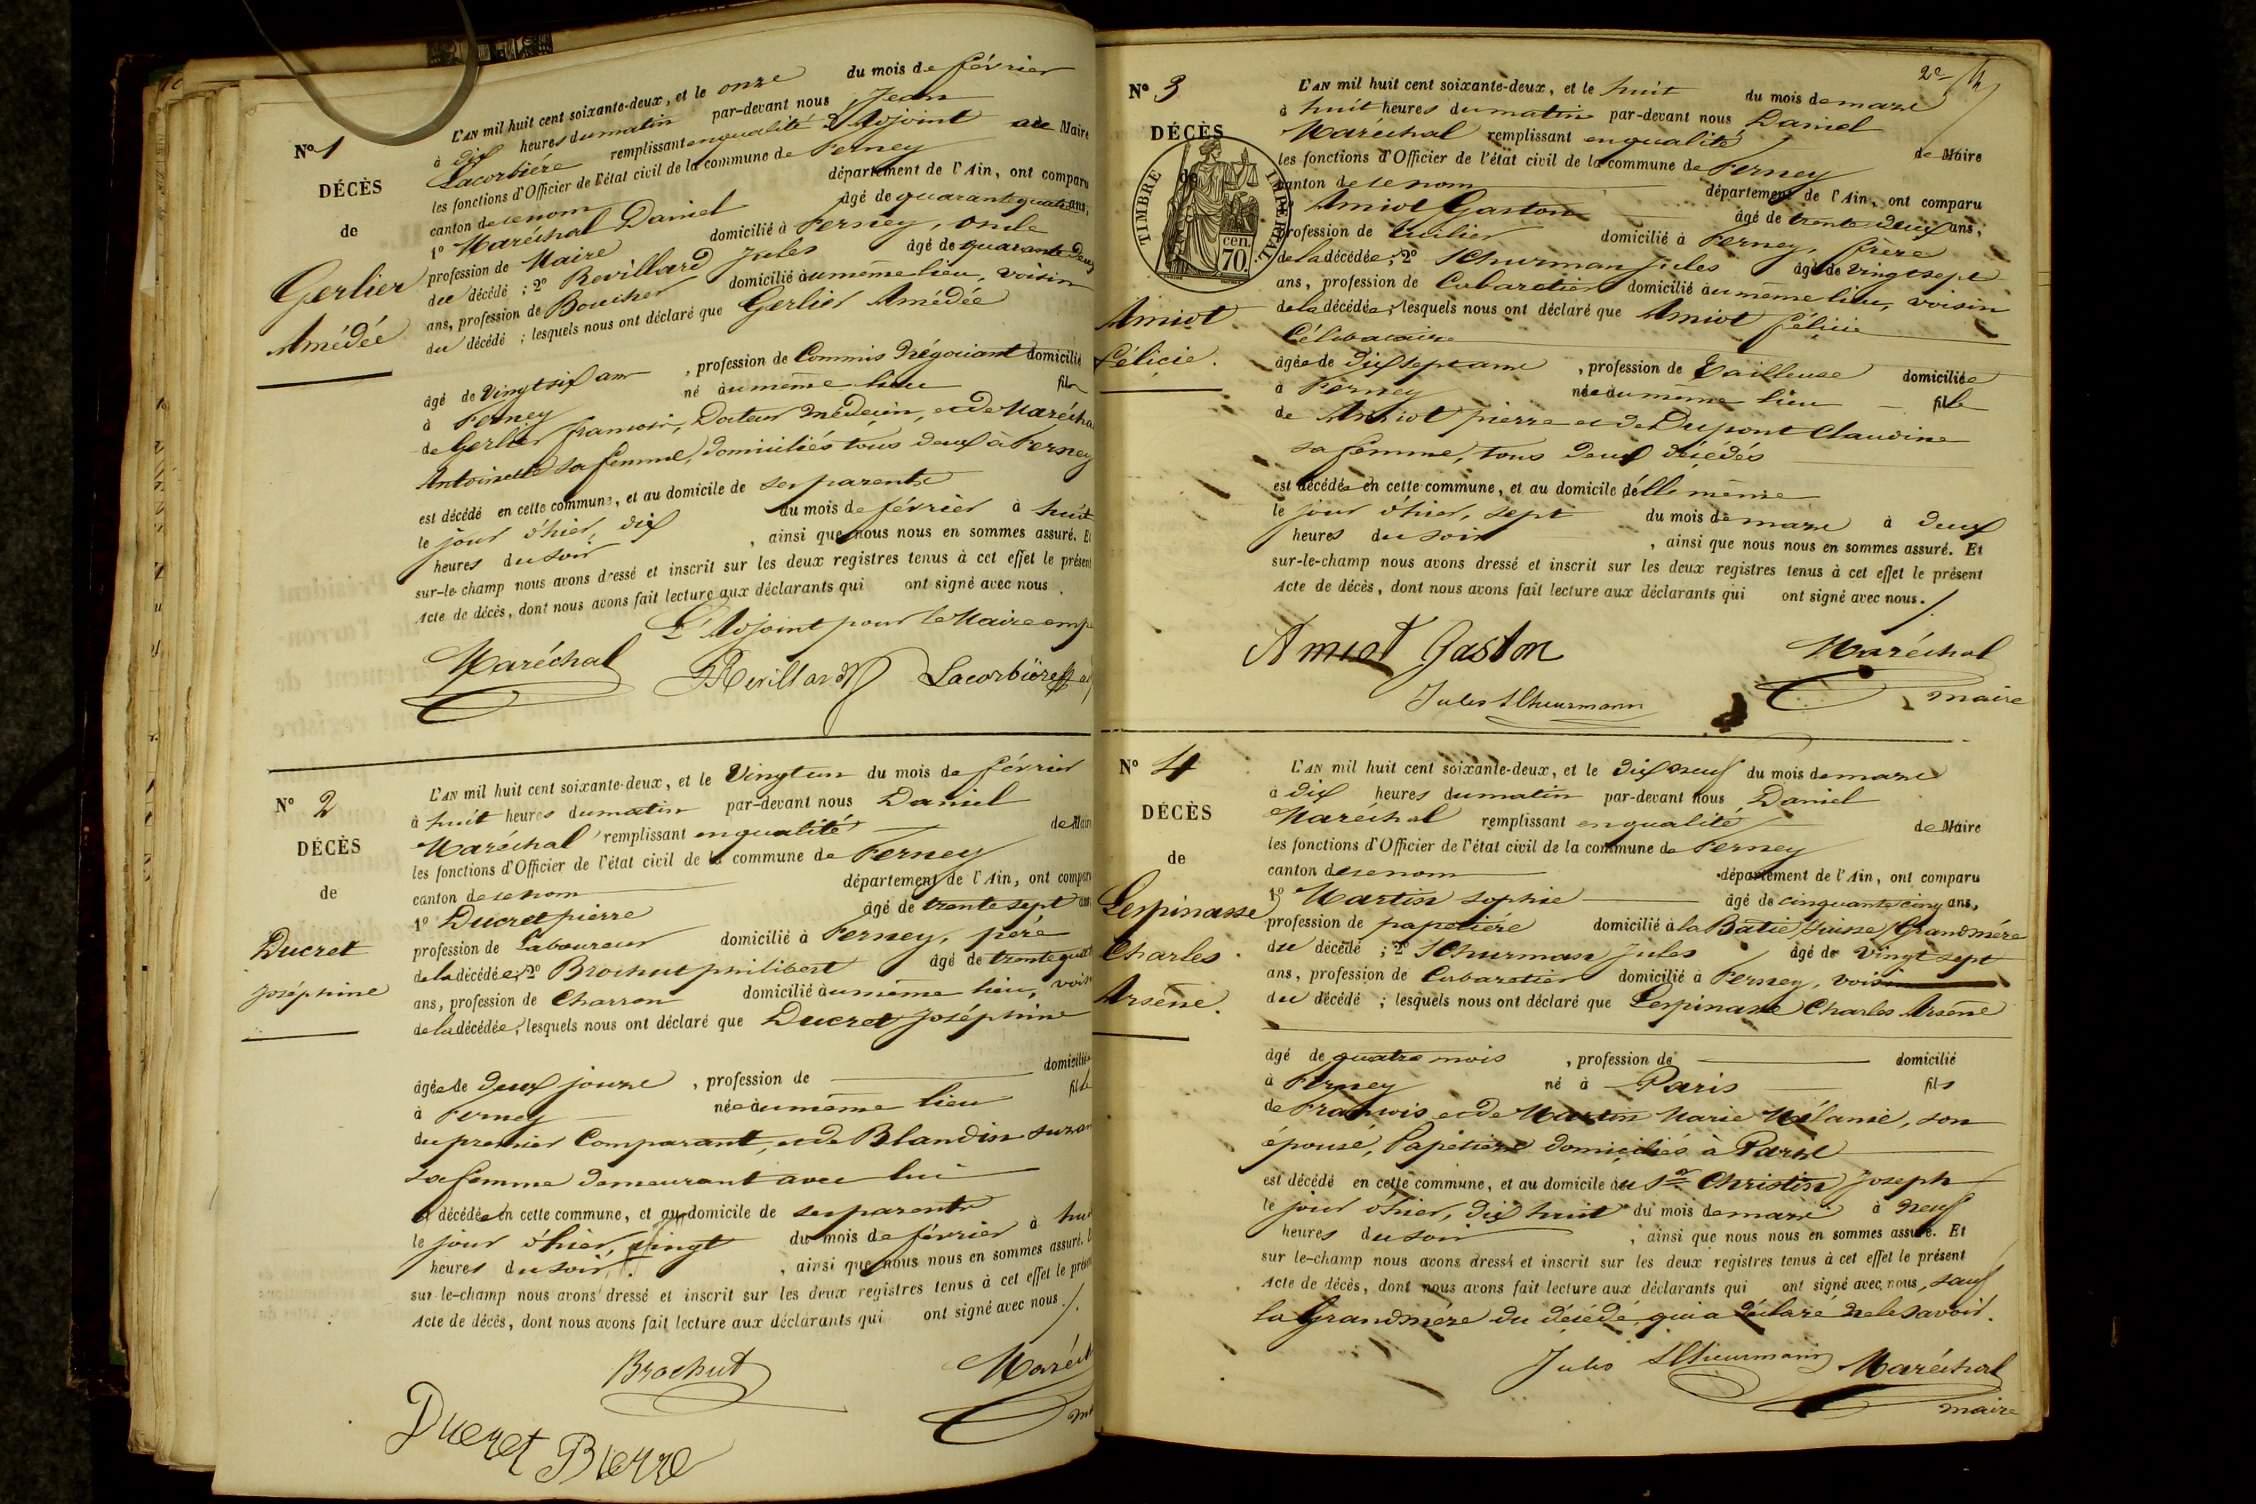 N° 1
DÉCÈS
de
Gerlier
Amédée
L'AN mil huit cent soixante-deux, et le onze du mois de février
à dix heures du matin par-devant nous Jean
Lacorbière remplissant en qualité d'Adjoint au Maire
les fonctions d'Officier de l'état civil de la commune de Ferney
canton de ce nom département de l'Ain, ont comparu
1° Maréchal Daniel âgé de quarante quatre ans,
profession de Maire domicilié à Ferney, oncle
du décédé ; 2° Revillard Jules âgé de quarante deux
ans, profession de Boucher domicilié au même lieu, voisin
du décédé ; lesquels nous ont déclaré que Gerlier Amédée
âgé de vingt six ans , profession de Commis Négociant domicilié
à Ferney né au même lieu fils
de Gerlier francois, Docteur médecin, et de Maréchal
Antoinette sa femme, domiciliés tous deux à Ferney
est décédé en cette commune, et au domicile de ses parents
le jour d'hier, dix du mois de février à huit
heures du soir , ainsi que nous nous en sommes assuré. Et
sur-le-champ nous avons dressé et inscrit sur les deux registres tenus à cet effet le présent
Acte de décès, dont nous avons fait lecture aux déclarants qui ont signé avec nous.
L'Adjoint pour le Maire emp
Maréchal Revillard Lacorbière
N° 2
DÉCÈS
de
Ducret
Joséphine
L'AN mil huit cent soixante-deux, et le Vingt un du mois de février
à huit heures du matin par-devant nous Daniel
Maréchal remplissant en qualité de Maire
les fonctions d'Officier de l'état civil de la commune de Ferney
canton de ce nom département de l'Ain, ont comparu
1° Ducret pierre âgé de trente sept ans
profession de Laboureur domicilié à Ferney, père
de la décédée ; 2° Brochut philibert âgé de trente quatre
ans, profession de Charron domicilié au même lieu, voisin
de la décédée ; lesquels nous ont déclaré que Ducret Joséphine
âgée de deux jours , profession de domiciliée
à Ferney née au même lieu fille
du premier Comparant, et de Blandin
sa femme demeurant avec lui
est décédée en cette commune, et au domicile de ses parents
le jour d'hier, vingt du mois de février à huit
heures du soir, , ainsi que nous nous en sommes assuré. Et
sur-le-champ nous avons dressé et inscrit sur les deux registres tenus à cet effet le présent
Acte de décès, dont nous avons fait lecture aux déclarants qui ont signé avec nous.
Brochut Maréchal
Ducret Pierre
2e
N° 3
DÉCÈS
de
TIMBRE IMPÉRIAL
cen.
70.
Amiot
félicie.
L'AN mil huit cent soixante-deux, et le huit du mois de mars
à huit heures du matin par-devant nous Daniel
Maréchal remplissant en qualité de Maire
les fonctions d'Officier de l'état civil de la commune de Ferney
canton de ce nom département de l'Ain, ont comparu
Amiot Gaston âgé de trente deux ans,
profession de tuilier domicilié à Ferney, frère
de la décédée ; 2° Schurman Jules âgé de vingt sept
ans, profession de Cabaretier domicilié au même lieu, voisin
de la décédée ; lesquels nous ont déclaré que Amiot félicie
Célibataire
âgée de dix sept ans , profession de Tailleuse domiciliée
à Ferney née au même lieu fille
de Amiot pierre et de Dupont Claudine
sa femme, tous deux décédés
est décédée en cette commune, et au domicile d'elle même
le jour d'hier, sept du mois de mars à deux
heures du soir , ainsi que nous nous en sommes assuré. Et
sur-le-champ nous avons dressé et inscrit sur les deux registres tenus à cet effet le présent
Acte de décès, dont nous avons fait lecture aux déclarants qui ont signé avec nous.
Amiot Gaston Maréchal
Jules Scheurmann maire
N° 4
DÉCÈS
de
Lespinasse
Charles
Arsène.
L'AN mil huit cent soixante-deux, et le dix neuf du mois de mars
à dix heures du matin par-devant nous Daniel
Maréchal remplissant en qualité de Maire
les fonctions d'Officier de l'état civil de la commune de Ferney
canton de ce nom département de l'Ain, ont comparu
1° Martin sophie âgé de cinquante cinq ans,
profession de papetière domicilié à la Batie Suisse, Grand mère
du décédé ; 2° Schurman Jules âgé de vingt sept
ans, profession de Cabaretier domicilié à Ferney, voisin
du décédé ; lesquels nous ont déclaré que Lespinasse Charles Arsène
âgé de quatre mois , profession de domicilié
à Ferney né à Paris fils
de Francois et de Martin Marie Mélanie, son
épouse, Papetiers domiciliés à Paris
est décédé en cette commune, et au domicile du Sr Christin Joseph
le jour d'hier, dix huit du mois de mars à neuf
heures du soir , ainsi que nous nous en sommes assuré. Et
sur le-champ nous avons dressé et inscrit sur les deux registres tenus à cet effet le présent
Acte de décès, dont nous avons fait lecture aux déclarants qui ont signé avec nous, sauf
la Grand mère du décédé qui a déclaré ne le savoir.
Jules Scheurmann Maréchal
maire